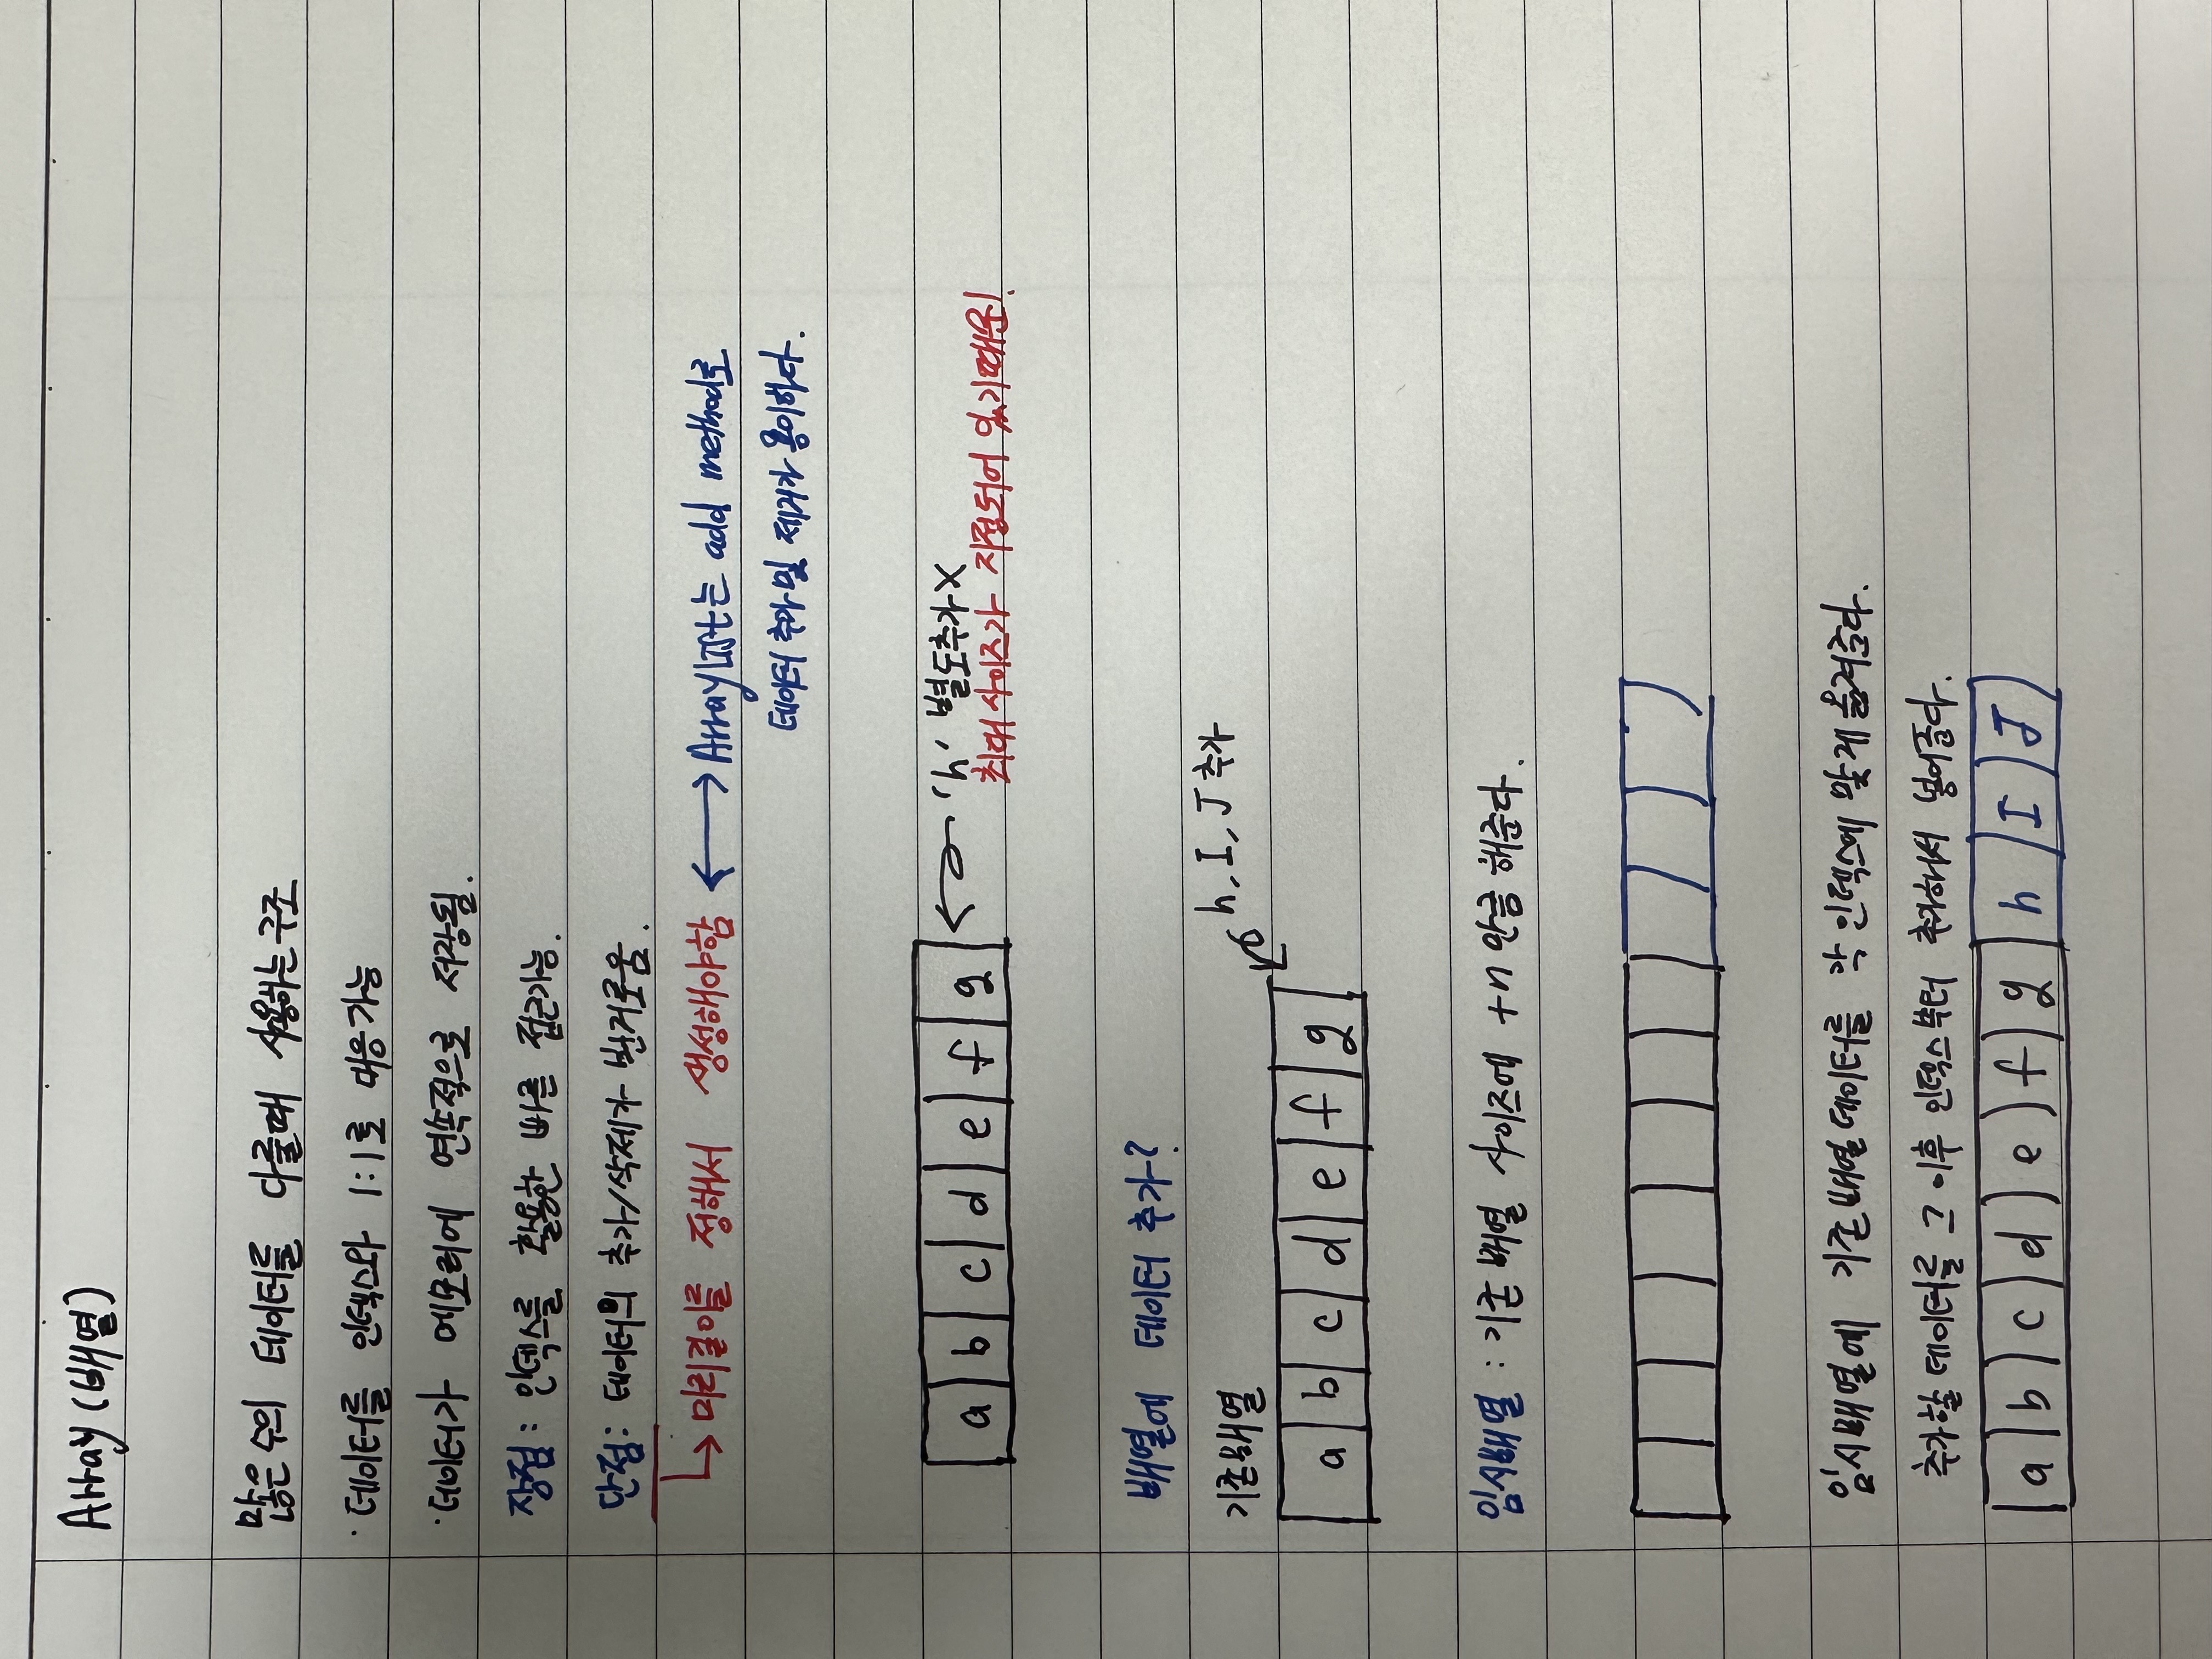 Array (배열)
많은 수의 데이터를 다룰때 사용하는 구조
· 데이터를 인덱스와 1:1로 대응가능
· 데이터가 메모리에 연속적으로 저장됨.
장점: 인덱스를 활용한 빠른 접근가능.
단점: 데이터의 추가/삭제가 번거로움.
미리길이를 정해서 생성해야함 ArrayList는 add method로
데이터 추가 및 제거가 용이하다.
a b c d e f g 'h' 별도추가 X
최대 사이즈가 지정되어 있기때문!
배열에 데이터 추가?
기존배열 h, I, J 추가
a b c d e f g
임시배열 : 기존 배열 사이즈에 +n 만큼 해준다.
임시배열에 기존배열 데이터를 각 인덱스에 맞게 옮겨준다.
추가할 데이터를 그 이후 인덱스부터 추가해서 넣어준다.
a b c d e f g h I J